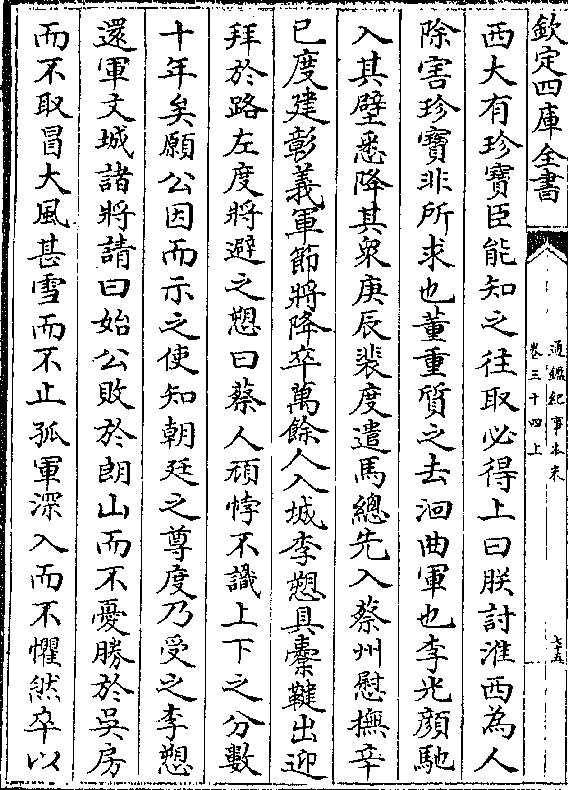 欽定四庫全書
通鑑紀事本末
卷三十四上
七十五
西大有珍寶臣能知之往取必得上曰朕討淮西為人
除害珍寶非所求也董重質之去洄曲軍也李光顔馳
入其壁悉降其衆庚辰裴度遣馬總先入蔡州慰撫辛
巳度建彰義軍節將降卒萬餘人入城李愬具櫜鞬出迎
拜於路左度將避之愬曰蔡人頑悖不識上下之分數
十年矣願公因而示之使知朝廷之尊度乃受之李愬
還軍文城諸將請曰始公敗於朗山而不憂勝於吳房
而不取冒大風甚雪而不止孤軍深入而不懼然卒以